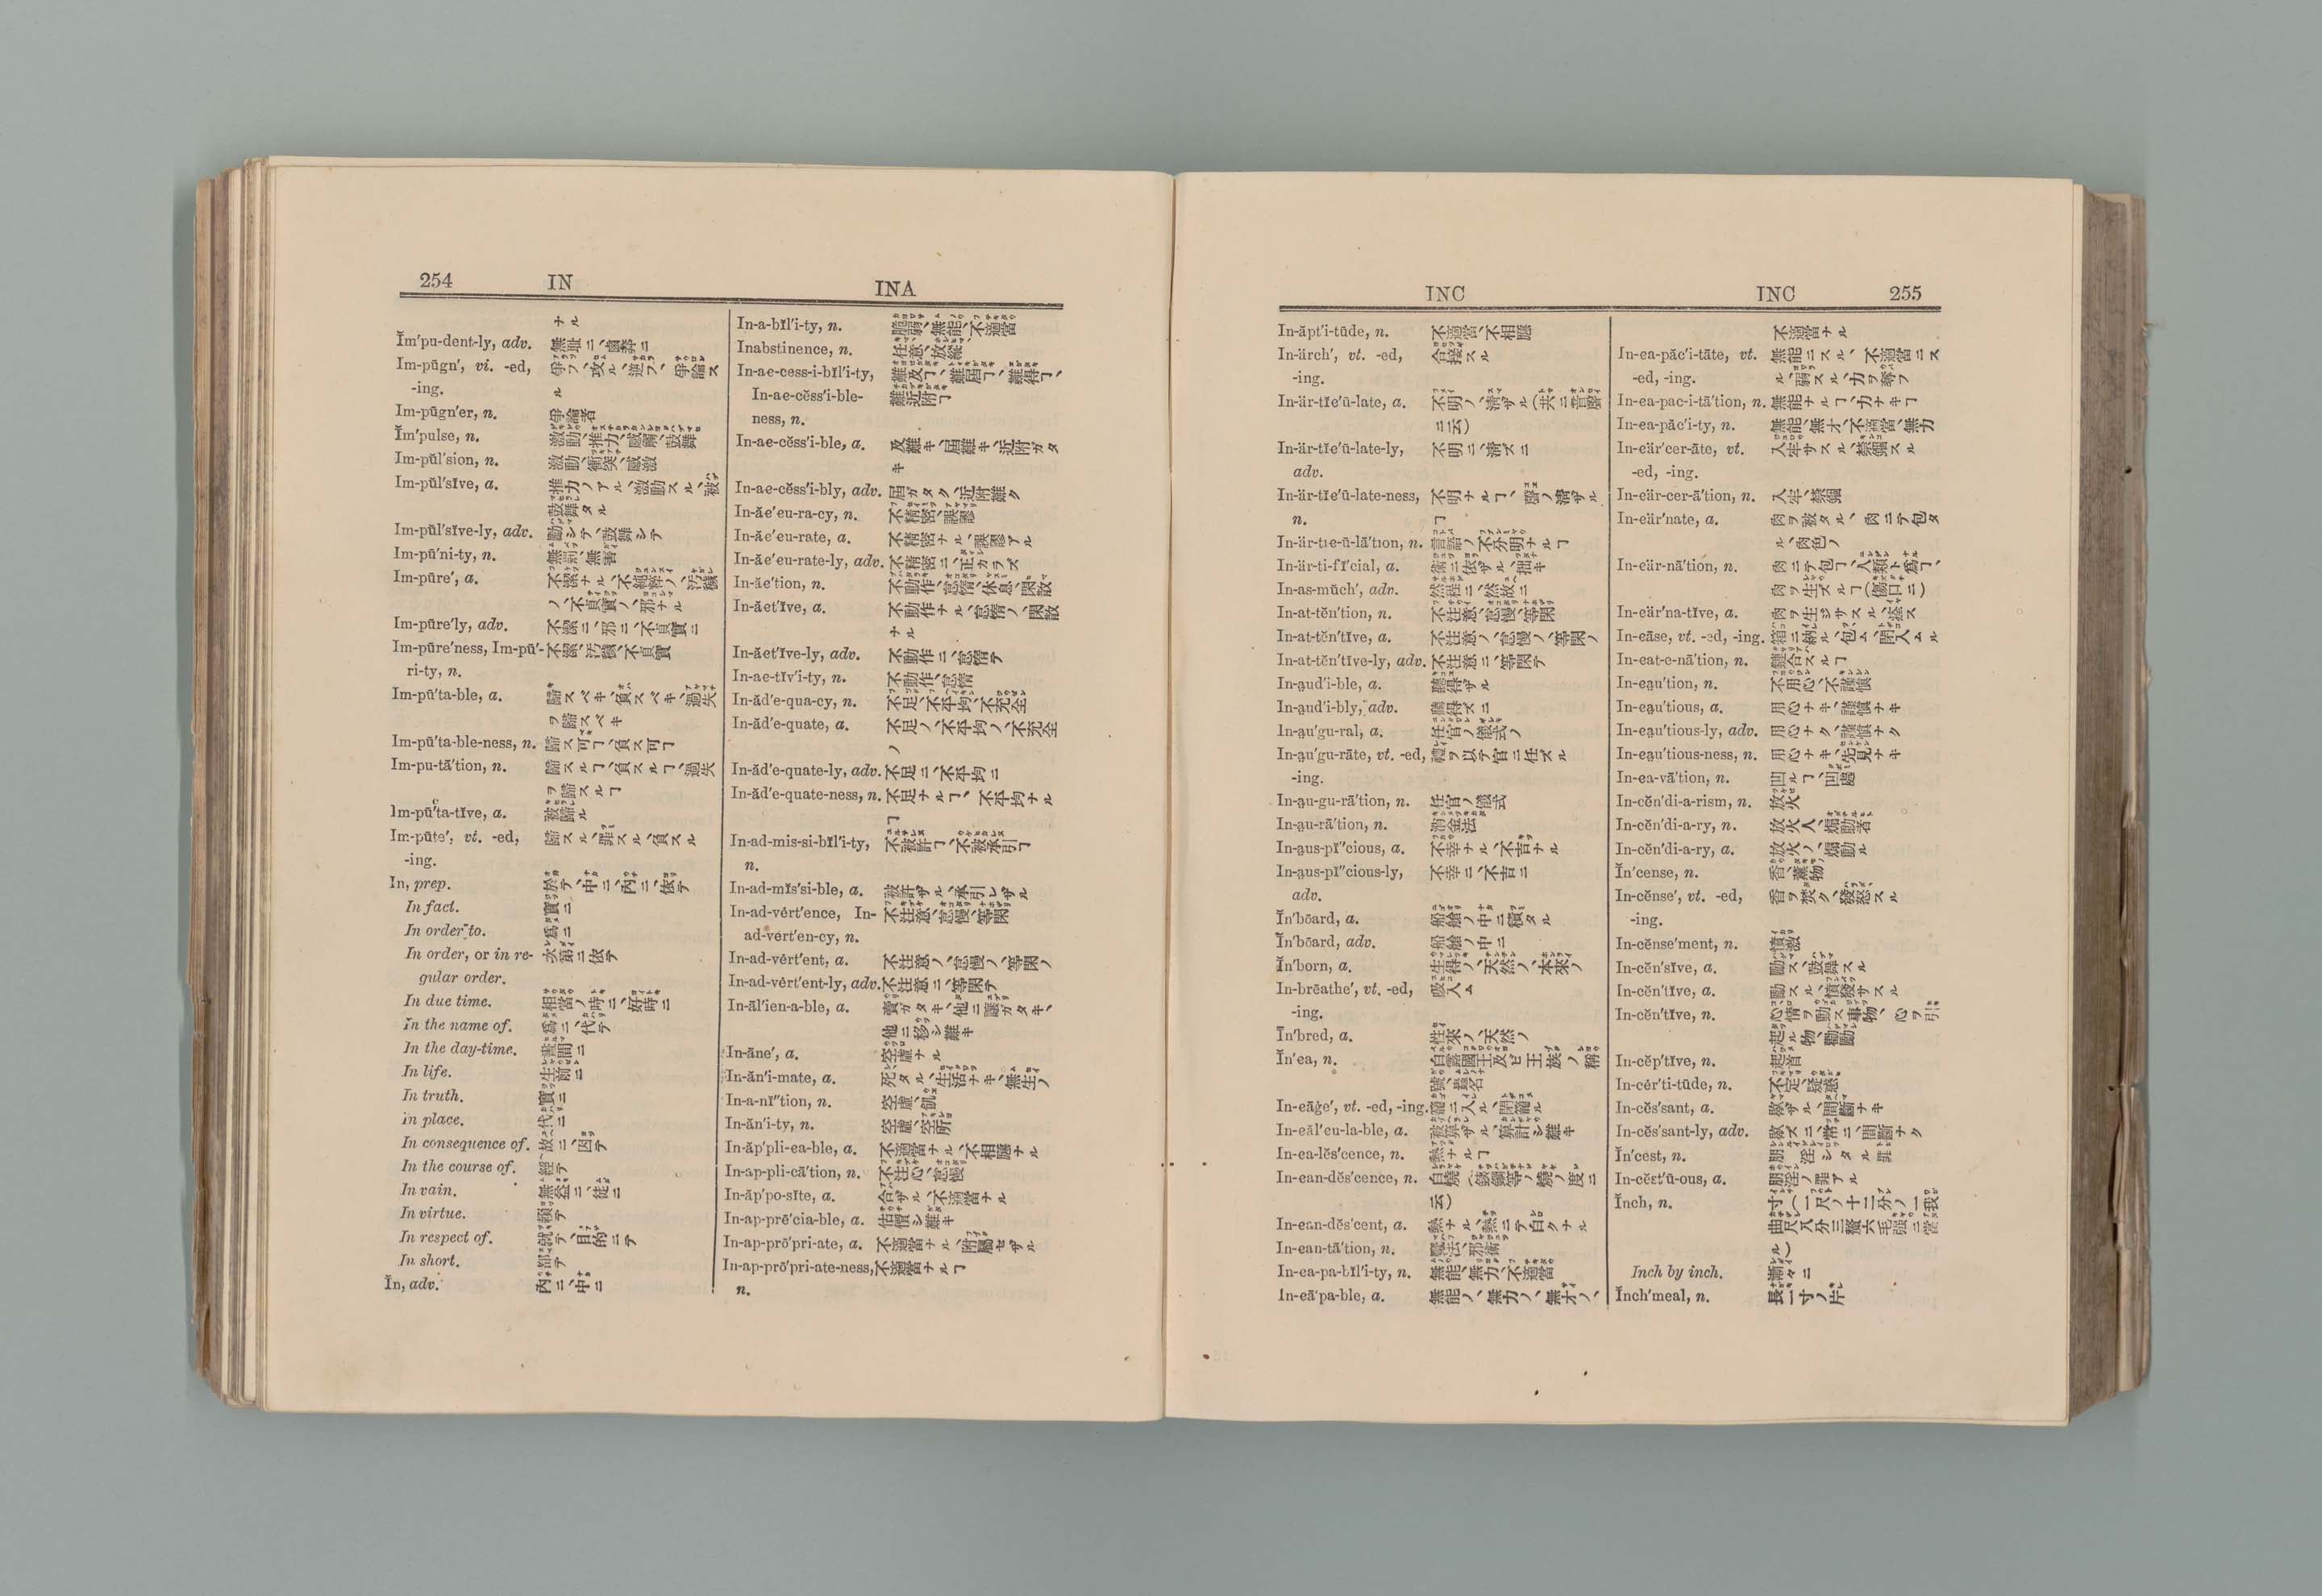 254 IN INA
ナル
Ĭm′pu-dent-ly, adv. 無耻ニ、鹵莽ニ
Im-pūgn′, vi. -ed, 爭フ、攻ル、逆フ、爭論ス
-ing. ル
Im-pūgn′er, n. 爭論者
Ĭm′pulse, n. 激動、推力、感觸、鼓舞
Im-pŭl′sion, n. 激動、衝突、感激
Im-pŭl′sĭve, a. 推力ノアル、激動スル、被
鼓舞タル
Im-pŭl′sĭve-ly, adv. 勵シテ、鼓舞シテ
Im-pū′ni-ty, n. 無罰、無害
Im-pūre′, a. 不潔ナル、不純粹ノ、汚穢
ノ、不貞實ノ、邪ナル
Im-pūre′ly, adv. 不潔ニ、邪ニ、不貞實ニ
Im-pūre′ness, Im-pū′- 不潔、汚穢、不貞實
ri-ty, n.
Im-pū′ta-ble, a. 歸スベキ、負スベキ、過失
ヲ歸スベキ
Im-pū′ta-ble-ness, n. 歸ス可ヿ、負ス可ヿ
Im-pu-tā′tion, n. 歸スルヿ、負スルヿ、過失
ヲ歸スルヿ
Im-pū′ta-tĭve, a. 被歸ル
Im-pūte′, vt. -ed, 歸スル、罪スル、負スル
-ing.
In, prep. 於テ、中ニ、內ニ、依テ
In fact. 實ニ
In order to. 爲ニ
In order, or in re- 次第ニ依テ
gular order.
In due time. 相當ノ時ニ、好時ニ
In the name of. 爲ニ、代テ
In the day-time. 晝間ニ
In life. 生前ニ
In truth. 實ニ
in place. 代ニ
In consequence of. 故ニ、因テ
In the course of. 經テ
In vain. 無益ニ、徒ニ
In virtue. 賴テ
In respect of. 就テ、目的ニテ
In short. 都テ
Ĭn, adv. 內ニ、中ニ
In-a-bĭl′i-ty, n. 脆弱、無能、不適當
Inabstinence, n. 任意、放縱
In-ac-cess-i-bĭl′i-ty, 難及ヿ、難屆ヿ、難得ヿ、
In-ac-cĕss′i-ble- 難近附ヿ
ness, n.
In-ac-cĕss′i-ble, a. 及難キ、屆難キ、近附ガタ
キ
In-ac-cĕss′i-bly, adv. 屆ガタク、近附難ク
In-ăc′cu-ra-cy, n. 不精密、誤謬
In-ăc′cu-rate, a. 不精密ナル、誤謬アル
In-ăc′cu-rate-ly, adv. 不精密ニ、正カラズ
In-ăc′tion, n. 不動作、怠惰、休息、閑散
In-ăct′ĭve, a. 不動作ナル、怠惰ノ、閑散
ナル
In-ăct′ĭve-ly, adv. 不動作ニ、怠惰テ
In-ac-tĭv′i-ty, n. 不動作、怠惰
In-ăd′e-qua-cy, n. 不足、不平均、不充全
In-ăd′e-quate, a. 不足ノ、不平均ノ、不充全
ノ
In-ăd′e-quate-ly, adv. 不足ニ、不平均ニ
In-ăd′e-quate-ness, n. 不足ナルヿ、不平均ナル
ヿ
In-ad-mis-si-bĭl′i-ty, 不被許ヿ、不被承引ヿ
n.
In-ad-mĭs′si-ble, a. 被許ザル、承引レザル
In-ad-vẽrt′ence, In- 不注意、怠慢、等閑
ad-vẽrt′en-cy, n.
In-ad-vẽrt′ent, a. 不注意ノ、怠慢ノ、等閑ノ
In-ad-vẽrt′ent-ly, adv. 不注意ニ、等閑テ
In-āl′ien-a-ble, a. 賣ガタキ、他ニ讓ガタキ、
他ニ移シ難キ
In-āne′, a. 空虛ナル
In-ăn′i-mate, a. 死タル、生活ナキ、無生ノ
In-a-nĭ″tion, n. 空虛、飢
In-ăn′i-ty, n. 空虛、空所
In-ăp′pli-ca-ble, a. 不適當ナル、不相應ナル
In-ap-pli-cā′tion, n. 不注心、怠慢
In-ăp′po-sĭte, a. 合ザル、不適當ナル
In-ap-prē′cia-ble, a. 估價シ難キ
In-ap-prō′pri-ate, a. 不適當ナル、附屬セザル
In-ap-prō′pri-ate-ness, 不適當ナルヿ
n.
INC INC 255
In-ăpt′i-tūde, n. 不適當、不相應
In-ärch′, vt. -ed, 合接スル
-ing.
In-är-tĭc′ū-late, a. 不明ノ、淸ザル(共ニ音聲
ニ云)
In-är-tĭc′ū-late-ly, 不明ニ、淸ズニ
adv.
In-är-tĭc′ū-late-ness, 不明ナルヿ、聲ノ淸ザル
n. ヿ
In-är-tic-ū-lā′tion, n. 言語ノ不分明ナルヿ
In-är-ti-fĭ′cial, a. 術ニ依ザル、拙キ
In-as-mŭch′, adv. 然程ニ、然故ニ
In-at-tĕn′tion, n. 不注意、怠慢、等閑
In-at-tĕn′tĭve, a. 不注意ノ、怠慢ノ、等閑ノ
In-at-tĕn′tĭve-ly, adv. 不注意ニ、等閑テ
In-a̤ud′i-ble, a. 聽得ザル
In-a̤ud′i-bly, adv. 聽得ズニ
In-a̤u′gu-ral, a. 任官ノ儀式ノ
In-a̤u′gu-rāte, vt. -ed, 禮ヲ以テ官ニ任ズル
-ing.
In-a̤u-gu-rā′tion, n. 任官ノ儀式
In-a̤u-rā′tion, n. 消金法
In-a̤us-pĭ″cious, a. 不幸ナル、不吉ナル
In-a̤us-pĭ″cious-ly, 不幸ニ、不吉ニ
adv.
Ĭn′bōard, a. 船艙ノ中ニ積タル
Ĭn′bōard, adv. 船艙ノ中ニ
Ĭn′born, a. 生得ノ、天然ノ、本來ノ
In-brēathe′, vt. -ed, 吸入ム
-ing.
Ĭn′bred, a. 性來ノ、天然ノ
Ĭn′ca, n. 白露國王及ビ王族ノ稱
號
In-cāġe′, vt. -ed, -ing. 籠ニ入ル、閉籠ル
In-căl′cu-la-ble, a. 被算ザル、算計シ難キ
In-ca-lĕs′cence, n. 熱ナルヿ
In-can-dĕs′cence, n. 白燒(鐵鋼等ノ燒ノ度ニ
云)
In-can-dĕs′cent, a. 熱ナル、熱ニテ白クナル
In-can-tā′tion, n. 魔法、邪術
In-ca-pa-bĭl′i-ty, n. 無能、無力、不適當
In-cā′pa-ble, a. 無能ノ、無力ノ、無才ノ、
不適當ナル
In-ca-păc′i-tāte, vt. 無能ニスル、不適當ニス
-ed, -ing. ル、弱スル、力ヲ奪フ
In-ca-pac-i-tā′tion, n. 無能ナルヿ、力ナキヿ
In-ca-păc′i-ty, n. 無能、無才、不適當、無力
In-cär′cer-āte, vt. 入牢サスル、禁錮スル
-ed, -ing.
In-cär-cer-ā′tion, n. 入牢、禁錮
In-cär′nate, a. 肉ヲ被タル、肉ニテ包タ
ル、肉色ノ
In-cär-nā′tion, n. 肉ニテ包ヿ、人類ト爲ヿ、
肉ノ生ズルヿ(傷口ニ)
In-cär′na-tĭve, a. 肉ヲ生ジサスル、痊ス
In-cāse, vt. -ed, -ing. 箱ニ納ル、包ム、閉入ムル
In-cat-e-nā′tion, n. 鏈合スルヿ
In-ca̤u′tion, n. 不用心、不謹愼
In-ca̤u′tious, a. 用心ナキ、謹愼ナキ
In-ca̤u′tious-ly, adv. 用心ナク、謹愼ナク
In-ca̤u′tious-ness, n. 用心ナキ、先見ナキ
In-ca-vā′tion, n. 凹ルヿ、凹處
In-cĕn′di-a-rism, n. 放火
In-cĕn′di-a-ry, n. 放火人、煽動者
In-cĕn′di-a-ry, a. 放火ノ、煽動ル
Ĭn′cense, n. 香、薰物
In-cĕnse′, vt. -ed, 香ヲ焚ク、發怒スル
-ing.
In-cĕnse′ment, n. 憤激
In-cĕn′sĭve, a. 勵ス、鼓舞スル
In-cĕn′tĭve, a. 勵スル、憤發サスル
In-cĕn′tĭve, n. 心情ヲ動ス事物、心ヲ引
起ル物、勸勵
In-cĕp′tĭve, n. 起音
In-cẽr′ti-tūde, n. 不定、疑惑
In-cĕs′sant, a. 歇ザル、間斷ナキ
In-cĕs′sant-ly, adv. 歇ズニ、常ニ、間斷ナク
Ĭn′cest, n. 朋淫シタル罪
In-cĕst′ū-ous, a. 朋淫ノ罪アル
Ĭnch, n. 寸(一尺ノ十二分ノ一我
曲尺八分三釐六毛强ニ當
ル)
Inch by inch. 漸々ニ
Ĭnch′meal, n. 長一寸ノ片